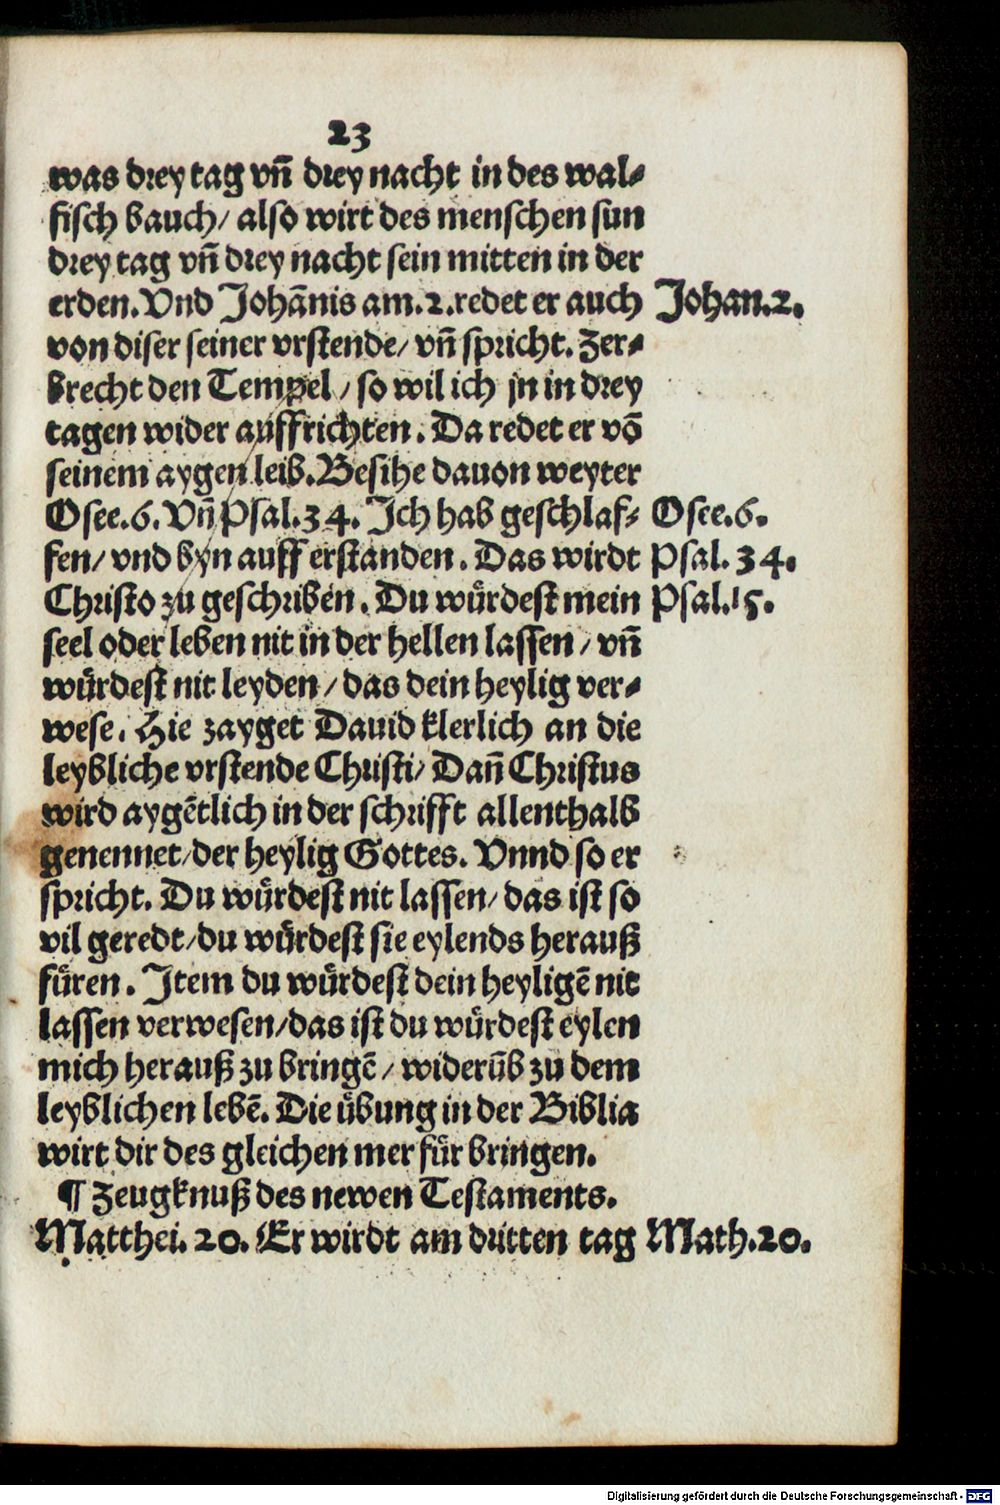 23
was drey tag vñ drey nacht in des wal⸗
fisch bauch/ also wirt des menschen sun
drey tag vñ drey nacht sein mitten in der
erden. Vnd Johãnis am. 2. redet er auch Johan. 2.
von diser seiner vrstende/ vñ spricht. Zer⸗
brecht den Tempel/ so wil ich jn in drey
tagen wider auffrichten. Da redet er võ
seinem aygen leib. Besihe dauon weyter
Osee. 6. Vñ Psal. 34. Ich hab geschlaf⸗ Osee. 6.
fen/ vnd byn auff erstanden. Das wirdt Psal. 34.
Christo zu geschriben. Du würdest mein Psal. 15.
seel oder leben nit in der hellen lassen/ vñ
würdest nit leyden/ das dein heylig ver⸗
wese. Hie zayget Dauid klerlich an die
leybliche vrstende Christi/ Dañ Christus
wird aygẽtlich in der schrifft allenthalb
genennet/ der heylig Gottes. Vnnd so er
spricht. Du würdest nit lassen/ das ist so
vil geredt/ du würdest sie eylends herauß
füren. Item du würdest dein heyligẽ nit
lassen verwesen/ das ist du würdest eylen
mich herauß zu bringẽ/ widerũb zu dem
leyblichen lebẽ. Die übung in der Biblia
wirt dir des gleichen mer für bringen.
¶ Zeugknuß des newen Testaments.
Matthei. 20. Er wirdt am dritten tag Math. 20.
Digitalisierung gefördert durch die Deutsche Forschungsgemeinschaft - DFG